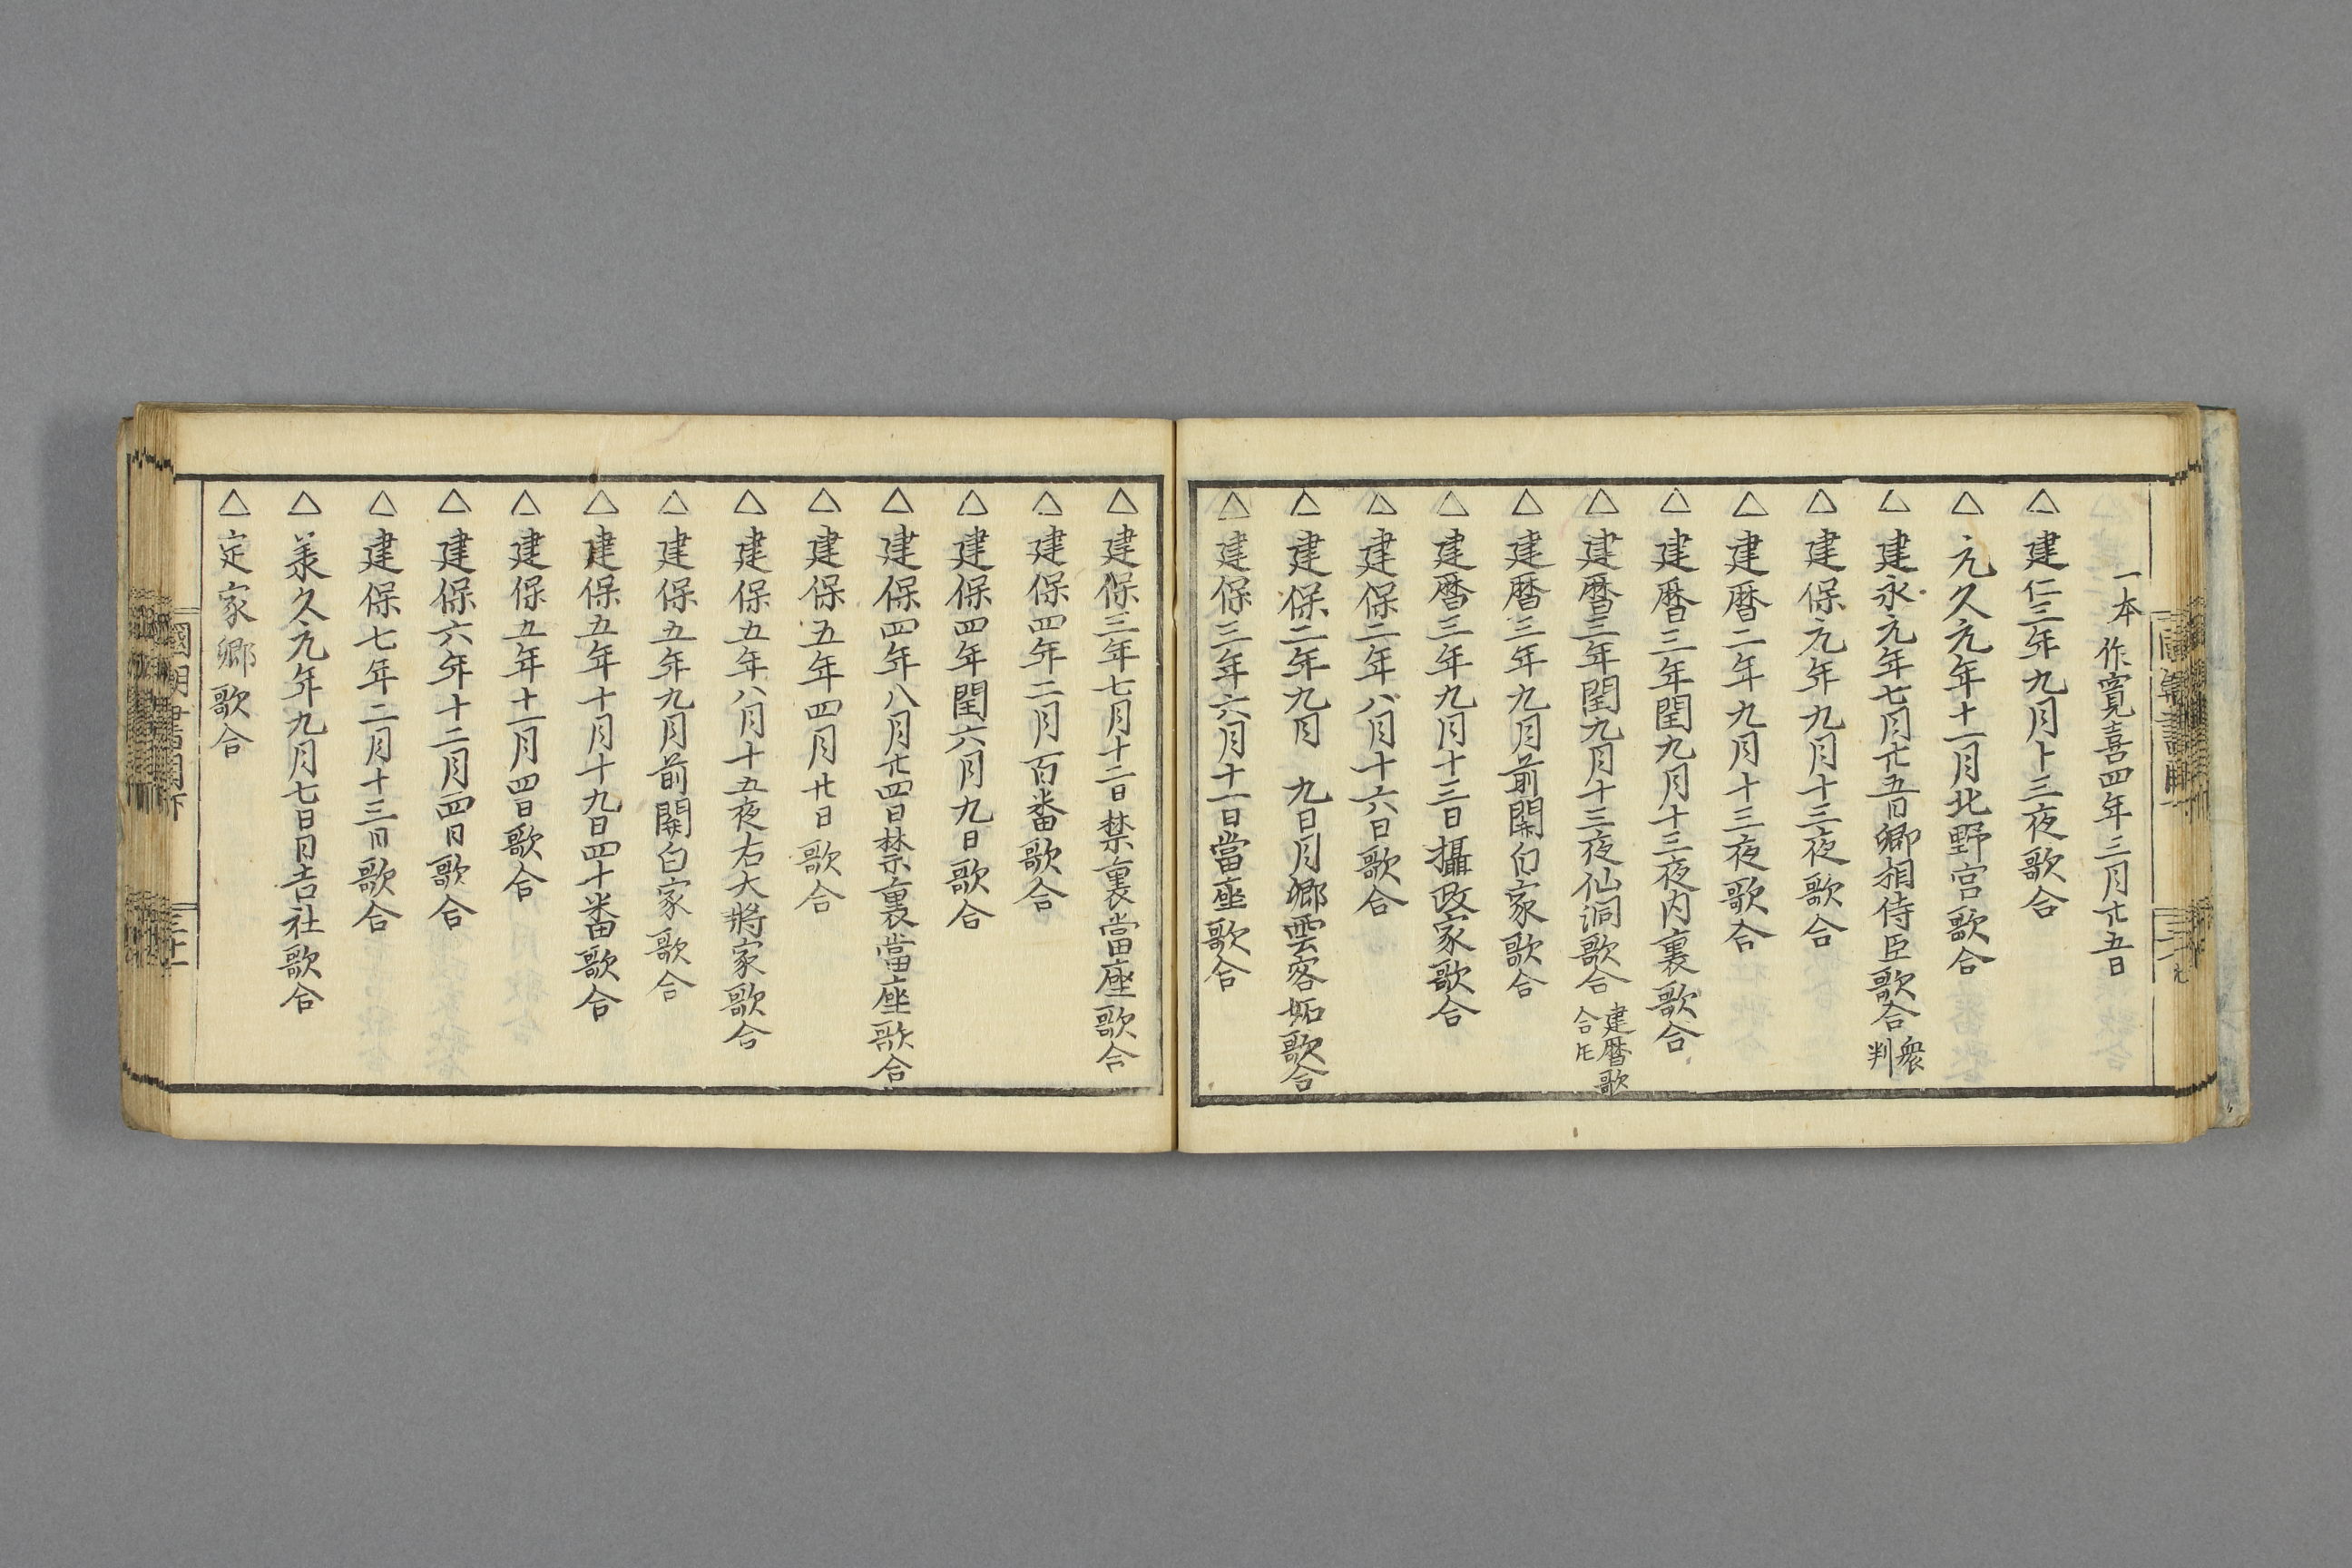 一本作寛喜四年三月廿五日
△建仁三年九月十三夜歌合
△元久元年十一月北野宮歌合
△建永元年七月廿五日卿相侍臣歌合 衆判
△建保元年九月十三夜歌合
△建暦二年九月十三夜歌合
△建暦三年閏九月十三夜内裏歌合
△建暦三年閏九月十三夜仙洞歌合 建暦歌合㐧
△建暦三年九月前關白家歌合
△建暦三年九月十三日攝政家歌合
△建保二年八月十六日歌合
△建保二年九月 九日月卿雲客妬歌合
△建保三年六月十一日當座歌合
△建保三年七月十二日禁裏當座歌合
△建保四年二月百畨歌合
△建保四年閏六月九日歌合
△建保四年八月廿四日禁裏當座歌合
△建保五年四月廿日歌合
△建保五年八月十五夜右大將家歌合
△建保五年九月前關白家歌合
△建保五年十月十九日四十畨歌合
△建保五年十一月四日歌合
△建保六年十二月四日歌合
△建保七年二月十三日歌合
△羕久元年九月七日日吉社歌合
△定家卿歌合
國朝書目下
三十